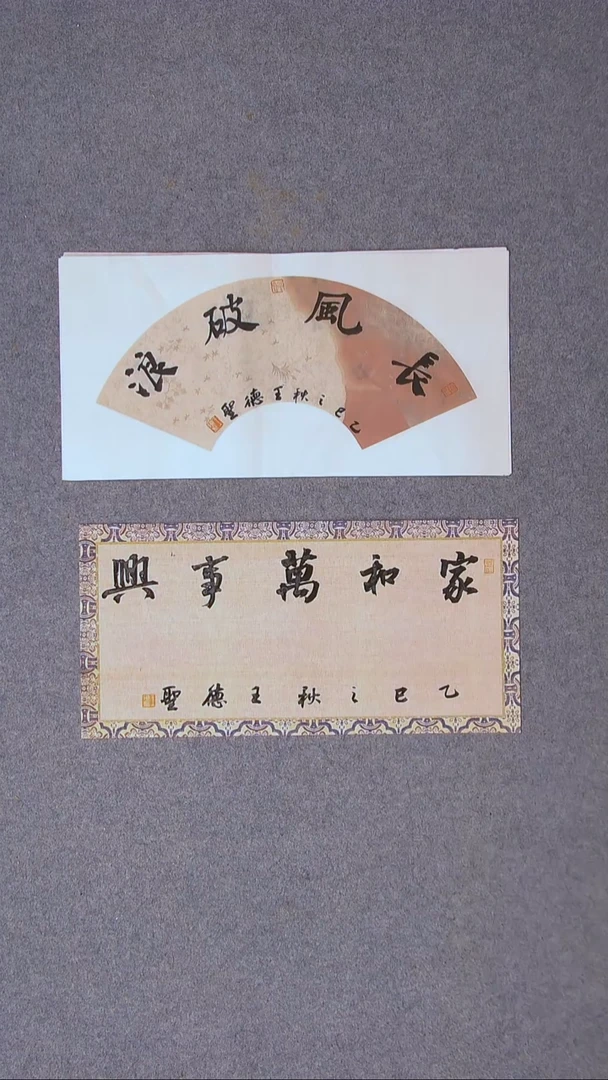 長風破浪
乙巳之秋王德聖
家和萬事興
乙巳之秋王德聖